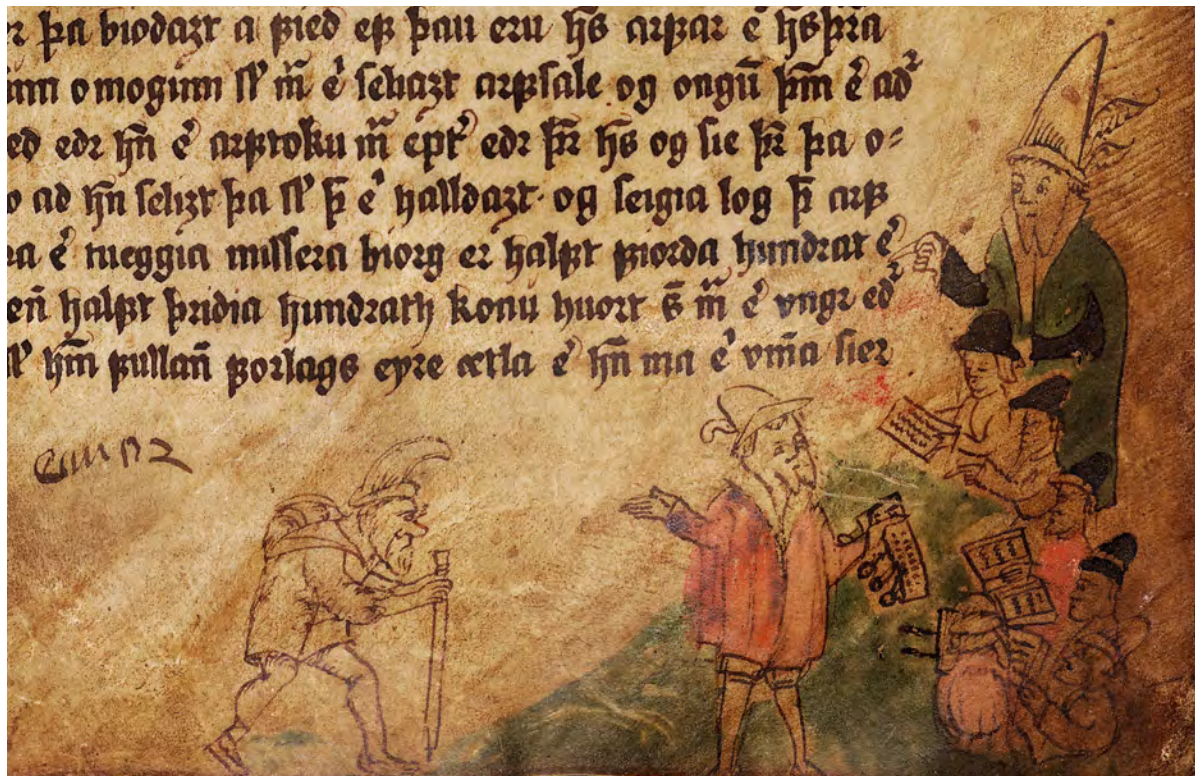 þa biodazt a ꝩied ef þau eru hs̄ arfar ē hs̄ fra
omoginn sꝉ m̄ ē seliazt arfsale og ongū þm̄ ē ad
edr hn̄ ē arftoku m̄ ept edr fr̄ hs̄ og sie fr̄ þa o=
ad hn̄ selizt þa sꝉ þ̄ ē halldazt og seigia log þ̄ arf
ē tueggia missera biorg er halft fiorda hundrat ē
en̄ halft þridia hundrath konu huort s̄ m̄ ē vngr ed
hm̄ fullan̄ forlags eyre ætla ē hn̄ ma ē vin̄a sier